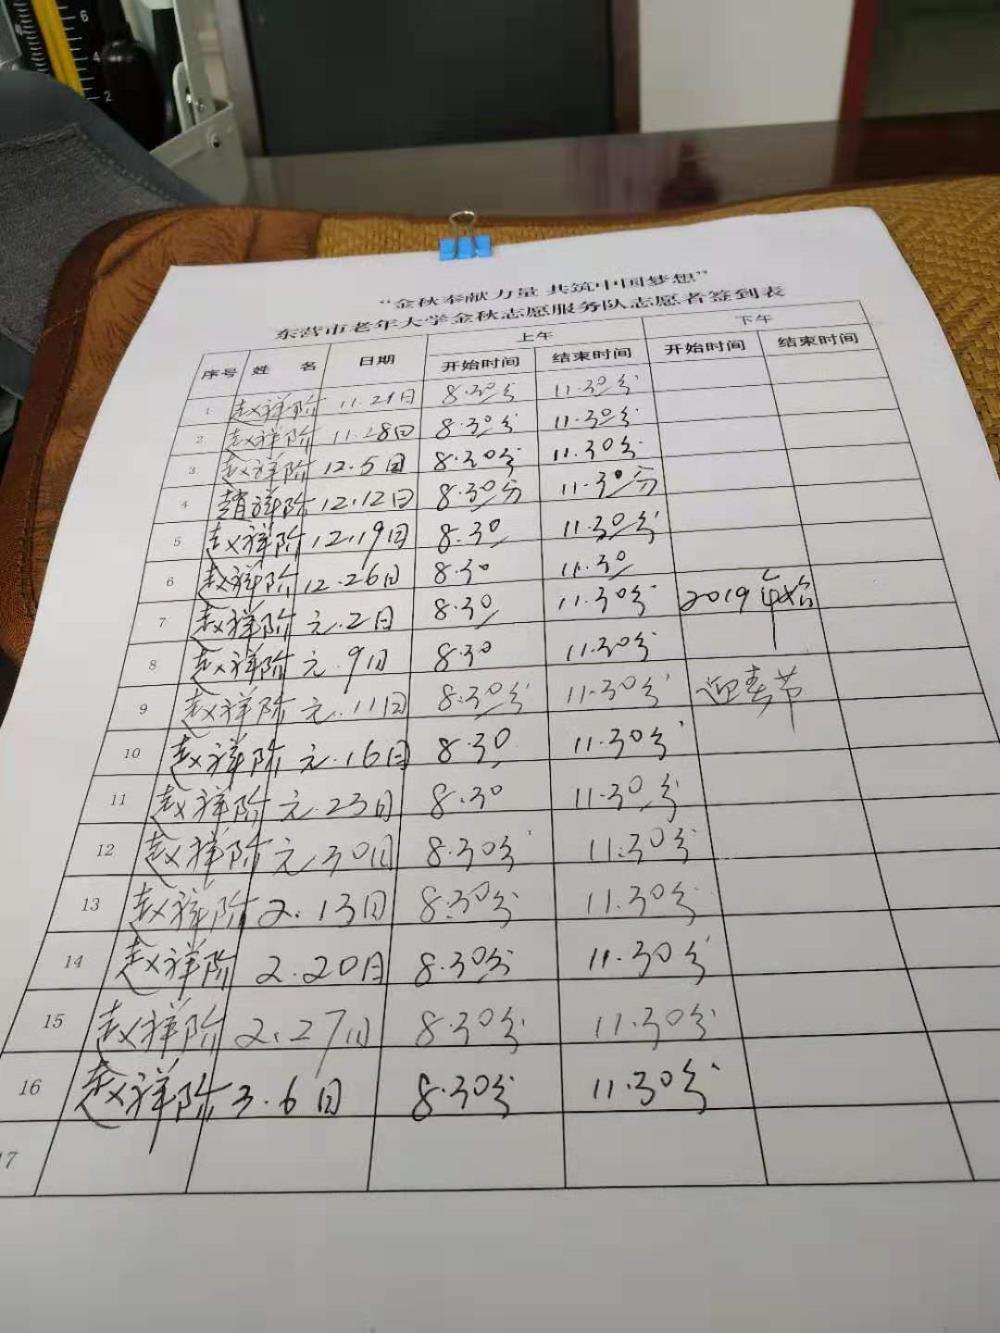 6
4
2
“金秋奉献力量 共筑中国梦想”
东营市老年大学金秋志愿服务队志愿者签到表
序号 姓 名 日期 上午 下午
开始时间 结束时间 开始时间 结束时间
1 赵祥阶 11.21日 8.30分 11.30分
2 赵祥阶 11.28日 8.30分 11.30分
3 赵祥阶 12.5日 8.30分 11.30分
4 趙祥阶 12.12日 8.30分 11.30分
5 赵祥阶 12.19日 8.30 11.30分
6 赵祥阶 12.26日 8.30 11.30
7 赵祥阶 元.2日 8.30 11.30分 2019年始
8 赵祥阶 元.9日 8.30 11.30分
9 赵祥阶 元.11日 8.30分 11.30分 迎春节
10 赵祥阶 元.16日 8.30 11.30分
11 赵祥阶 元.23日 8.30 11.30分
12 赵祥阶 元.30日 8.30分 11.30分
13 赵祥阶 2.13日 8.30分 11.30分
14 赵祥阶 2.20日 8.30分 11.30分
15 赵祥阶 2.27日 8.30分 11.30分
16 赵祥阶 3.6日 8.30分 11.30分
17